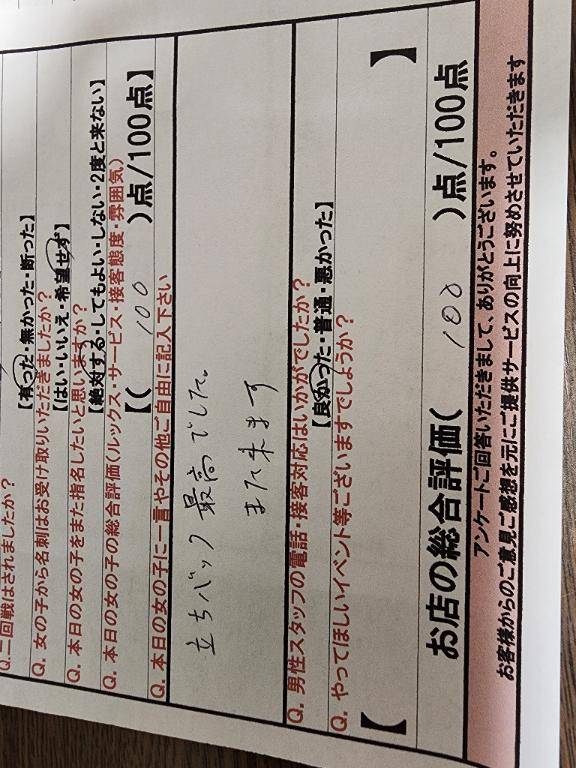 Q.二回戦はされましたか?
【有った・無かった・断った】
Q. 女の子から名刺はお受け取りいただきましたか?
【はい・いいえ・希望せず】
Q. 本日の女の子をまた指名したいと思いますか?
【絶対する・してもよい・しない・2度と来ない】
Q. 本日の女の子の総合評価(ルックス・サービス・接客態度・雰囲気)
【( 100 )点/100点】
Q. 本日の女の子に一言やその他ご自由に記入下さい
立ちバック最高でした。
また来ます
Q. 男性スタッフの電話・接客対応はいかがでしたか?
【良かった・普通・悪かった】
Q. やってほしいイベント等ございますでしょうか?
【 】
お店の総合評価( 100 )点/100点
アンケートご回答いただきまして、ありがとうございます。
お客様からのご意見ご感想を元にご提供サービスの向上に努めさせていただきます